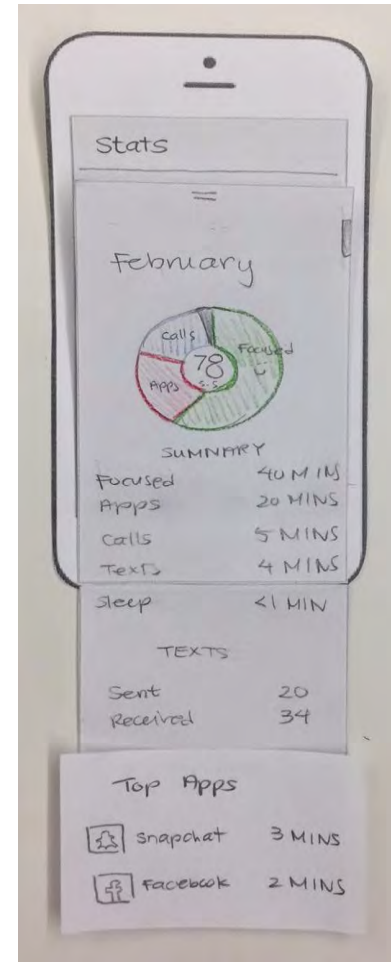 Stats
February
Calls
Focused
78
S.S.
Apps
SUMMARY
Focused 40 MINS
Apps 20 MINS
Calls 5 MINS
Texts 4 MINS
Sleep <1 MIN
TEXTS
Sent 20
Received 34
Top Apps
Snapchat 3 MINS
Facebook 2 MINS